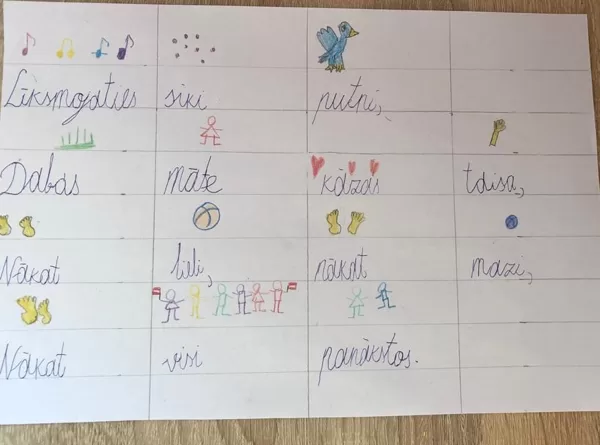 Līksmojaties sīki putni,
Dabas māte kāzas taisa,
Nākat lieli, nākat mazi,
Nākat visi panākstos.